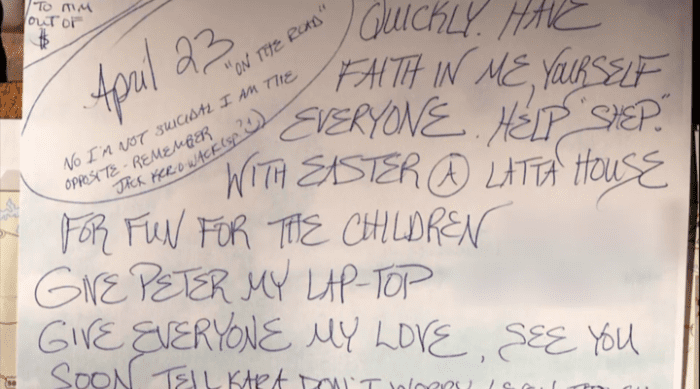 TO MM
OUT OF
$
April 23
"ON THE ROAD"
NO I'M NOT SUICIDAL I AM THE
OPPOSITE - REMEMBER
JACK KEROWACK (sp?)
QUICKLY. HAVE
FAITH IN ME, YOURSELF
EVERYONE. HELP "SHEP."
WITH EASTER @ LATTA HOUSE
FOR FUN FOR THE CHILDREN
GIVE PETER MY LAP-TOP
GIVE EVERYONE MY LOVE, SEE YOU
SOON TELL KARA DON'T WORRY